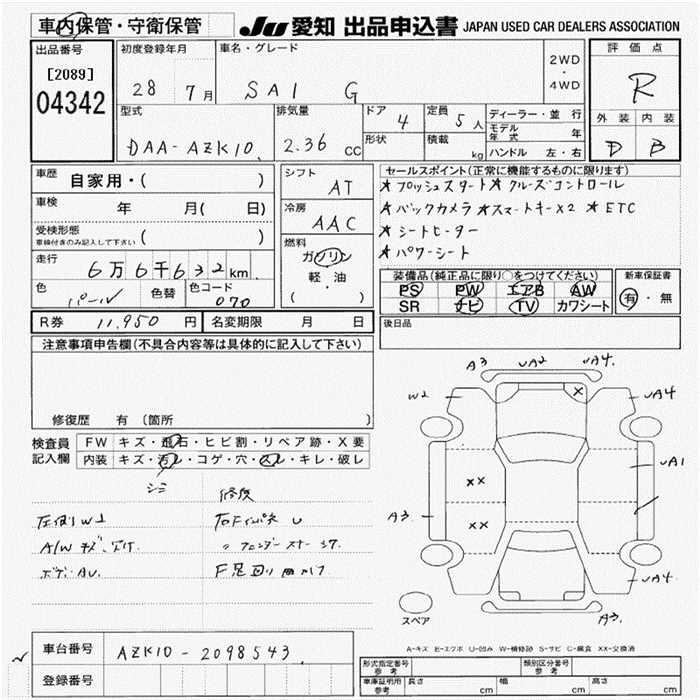 車内保管・守衛保管
JU 愛知 出品申込書 JAPAN USED CAR DEALERS ASSOCIATION
出品番号
[2089]
04342
初度登録年月
28 7月
車名・グレード
SAI G
2WD
・
4WD
評価点
R
外装 内装
D B
型式
DAA-AZK10
排気量
2.36 cc
ドア
4
形状
定員
5人
積載
kg
ディーラー・並行
モデル年式 年
ハンドル 左・右
車歴
自家用・( )
車検
年 月( 日)
受検形態
車検付きのみ記入して下さい ( )
走行
6万6千632km
色
パール
色替
色コード
070
シフト
AT
冷房
AAC
燃料
ガソリン
軽・油
( )
セールスポイント(正常に機能するものに限ります)
★プッシュスタート★クルーズコントロール
★バックカメラ ★スマートキーx2 ★ETC
★シートヒーター
★パワーシート
装備品(純正品に限り○をつけてください)
PS PW エアB AW
SR ナビ TV カワシート
新車保証書
有・無
後日品
R券 11,950 円
名変期限 月 日
注意事項申告欄(不具合内容等は具体的に記入して下さい)
修復歴 有 (箇所 )
検査員
記入欄
FW キズ・飛石・ヒビ割・リペア跡・X要
内装 キズ・汚レ・コゲ・穴・スレ・キレ・破レ
シミ
修復
右Fインパネ U
A/W キズ
ボデー AU
F足回り曲がり
A3 UA2 UA4
W2
UA4
UA1
xx
xx
x
A3
UA4
A3
スペア
A-キズ E-エクボ U-凹み W-補修跡 S-サビ C-腐食 XX-交換済
車台番号
AZK10-2098543
登録番号
形式指定番号
参考
類別区分番号
参考
車庫証明用
参考
長さ cm
幅 cm
高さ cm